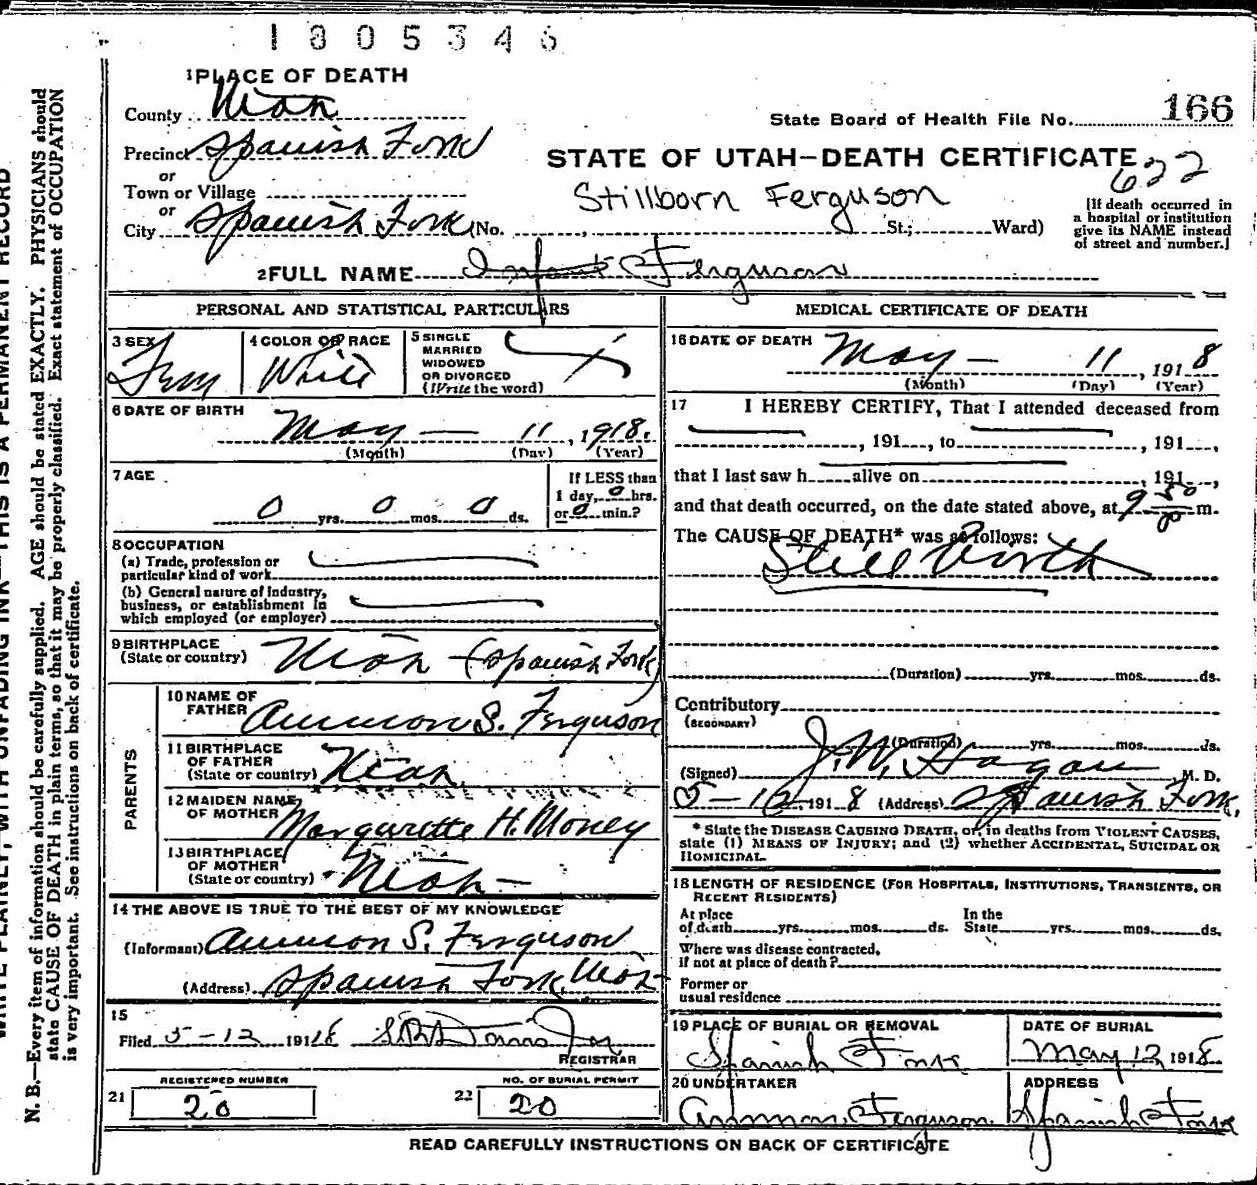 1805346
1 PLACE OF DEATH
County Utah
State Board of Health File No. 166
Precinct Spanish Fork
STATE OF UTAH—DEATH CERTIFICATE
622
or
Town or Village
Stillborn Ferguson
or
City Spanish Fork (No. , St.; Ward)
[If death occurred in
a hospital or institution
give its NAME instead
of street and number.]
2 FULL NAME Infant Ferguson
PERSONAL AND STATISTICAL PARTICULARS
3 SEX Fem
4 COLOR OR RACE White
5 SINGLE
MARRIED
WIDOWED
OR DIVORCED
(Write the word)
6 DATE OF BIRTH
May — 11, 1918.
(Month) (Day) (Year)
7 AGE
0 yrs. 0 mos. 0 ds.
If LESS than
1 day, 0 hrs.
or 0 min.?
8 OCCUPATION
(a) Trade, profession or
particular kind of work
(b) General nature of industry,
business, or establishment in
which employed (or employer)
9 BIRTHPLACE
(State or country) Utah (Spanish Fork)
PARENTS
10 NAME OF
FATHER Ammon S. Ferguson
11 BIRTHPLACE
OF FATHER
(State or country) Utah
12 MAIDEN NAME
OF MOTHER Margarette H. Money
13 BIRTHPLACE
OF MOTHER
(State or country) Utah —
14 THE ABOVE IS TRUE TO THE BEST OF MY KNOWLEDGE
(Informant) Ammon S. Ferguson
(Address) Spanish Fork, Utah
15
Filed 5-12 1918
REGISTRAR
REGISTERED NUMBER
21 20
NO. OF BURIAL PERMIT
22 20
MEDICAL CERTIFICATE OF DEATH
16 DATE OF DEATH
May — 11, 1918
(Month) (Day) (Year)
17 I HEREBY CERTIFY, That I attended deceased from
, 191 , to , 191 ,
that I last saw h alive on , 191 ,
and that death occurred, on the date stated above, at 9 50 m.
The CAUSE OF DEATH* was as follows:
Still Birth
(Duration) yrs. mos. ds.
Contributory
(SECONDARY)
(Duration) yrs. mos. ds.
(Signed) J. W. Hagan, M. D.
5-12 1918 (Address) Spanish Fork,
* State the DISEASE CAUSING DEATH, or, in deaths from VIOLENT CAUSES,
state (1) MEANS OF INJURY; and (2) whether ACCIDENTAL, SUICIDAL OR
HOMICIDAL.
18 LENGTH OF RESIDENCE (FOR HOSPITALS, INSTITUTIONS, TRANSIENTS, OR
RECENT RESIDENTS)
At place
of death yrs. mos. ds.
In the
State yrs. mos. ds.
Where was disease contracted,
if not at place of death?
Former or
usual residence
19 PLACE OF BURIAL OR REMOVAL
Spanish Fork
DATE OF BURIAL
May 12 1918
20 UNDERTAKER
Ammon Ferguson
ADDRESS
Spanish Fork
READ CAREFULLY INSTRUCTIONS ON BACK OF CERTIFICATE
WRITE PLAINLY, WITH UNFADING INK—THIS IS A PERMANENT RECORD
N. B.—Every item of information should be carefully supplied. AGE should be stated EXACTLY. PHYSICIANS should
state CAUSE OF DEATH in plain terms, so that it may be properly classified. Exact statement of OCCUPATION
is very important. See instructions on back of certificate.